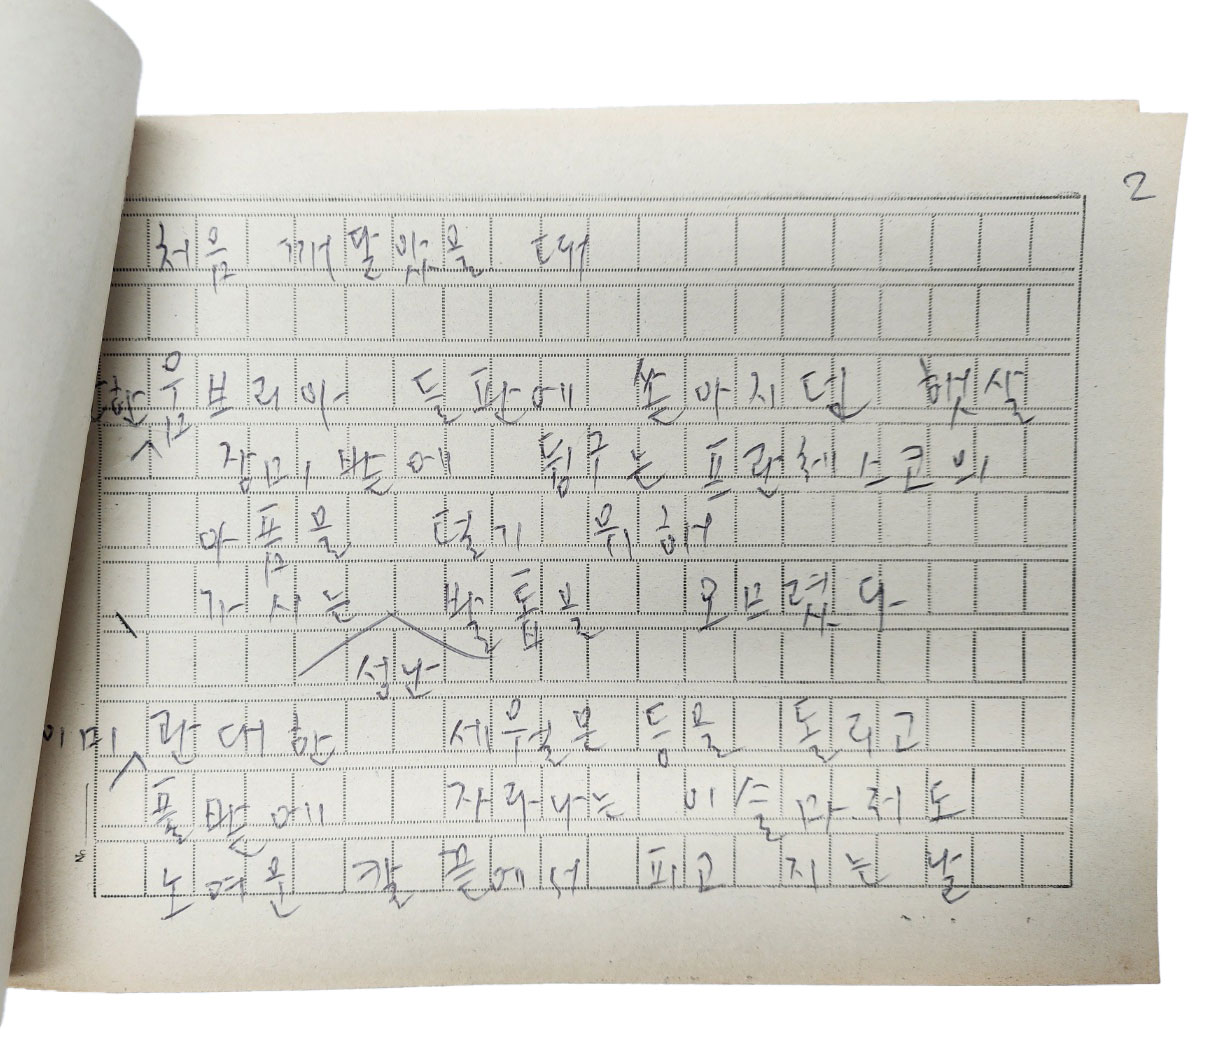 2
처음 깨달았을 때
움브리아 들판에 쏟아지던 햇살
장미밭에 뒹구는 프란체스코의
아픔을 덜기 위해
가시는 발톱을 오므렸다
성난
이미 관대한 세월은 등을 돌리고
풀밭에 자라나는 이슬마저도
노여운 칼 끝에서 피고 지는 날
№